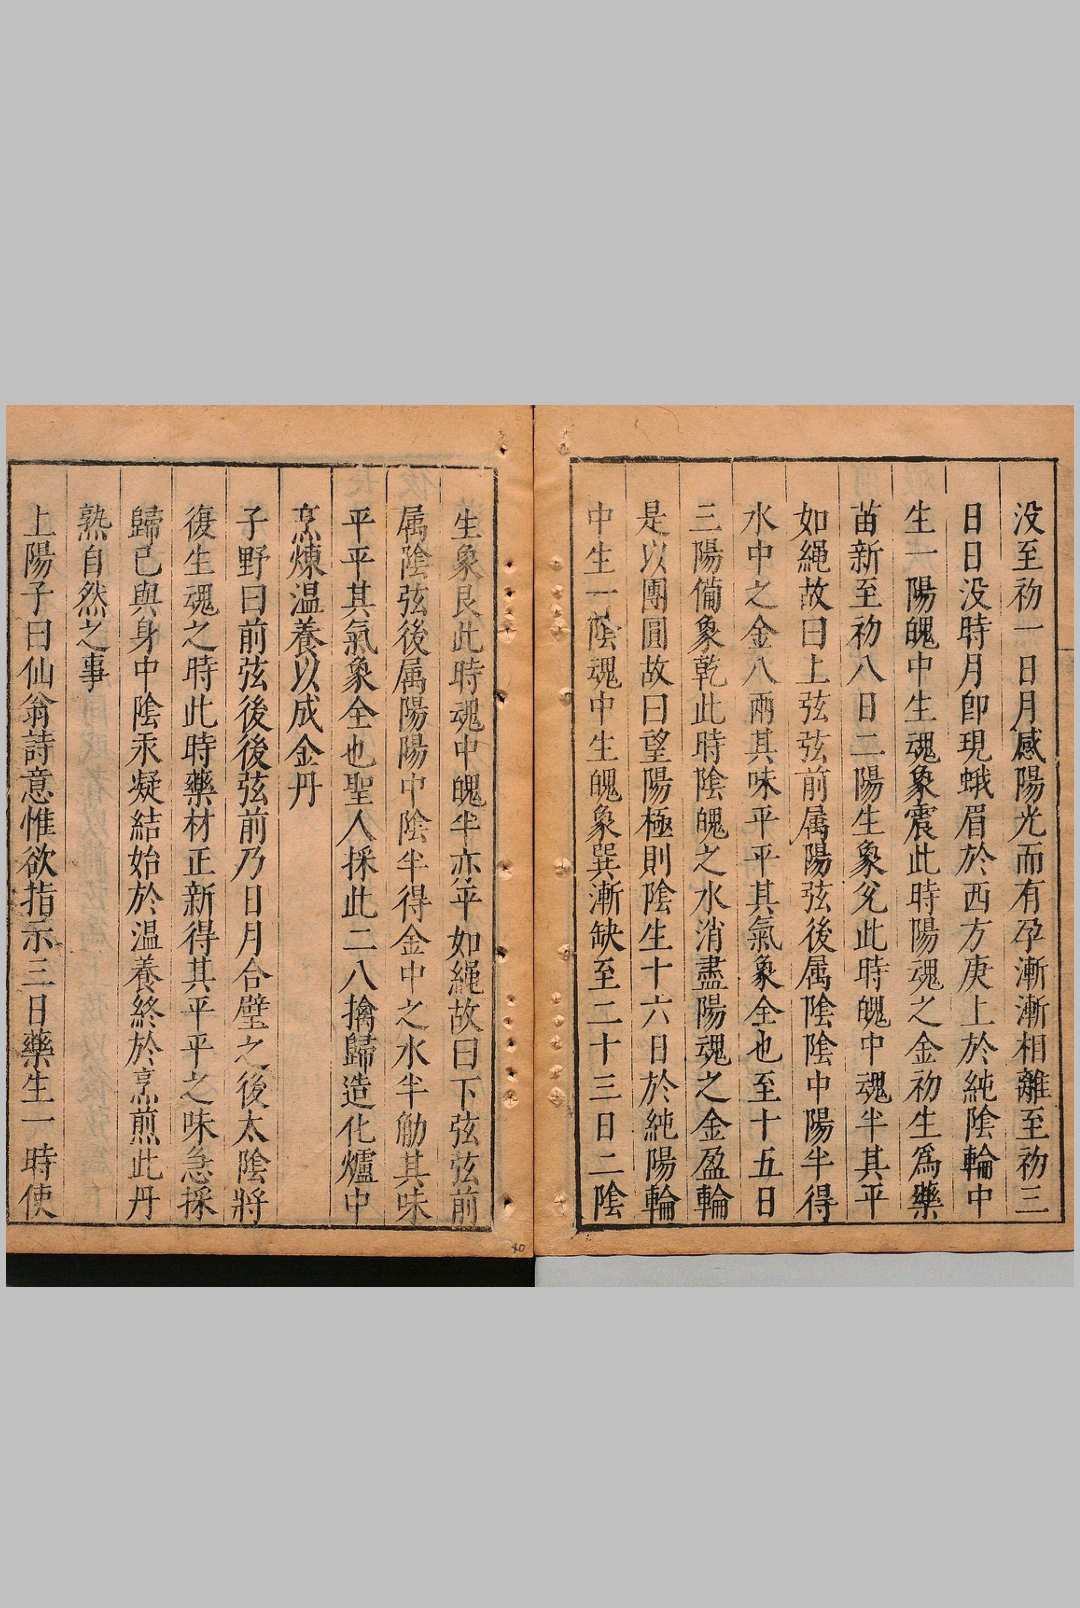 没至初一日月感陽光而有孕漸漸相離至初三
日日没時月卽現蛾眉於西方庚上於純陰輪中
生一陽魄中生魂象震此時陽魂之金初生爲藥
苗新至初八日二陽生象兊此時魄中魂半其平
如繩故曰上弦弦前属陽弦後属陰陰中陽半得
水中之金八兩其味平平其氣象全也至十五日
三陽備象乾此時陰魄之水消盡陽魂之金盈輪
是以團圓故曰望陽極則陰生十六日於純陽輪
中生一陰魂中生魄象巽漸缺至二十三日二陰
生象艮此時魂中魄半亦平如繩故曰下弦弦前
属陰弦後属陽陽中陰半得金中之水半觔其味
平平其氣象全也聖人採此二八擒歸造化爐中
烹煉温養以成金丹
子野曰前弦後後弦前乃日月合璧之後太陰將
復生魂之時此時藥材正新得其平平之味急採
歸己與身中陰汞凝結始於温養終於烹煎此丹
熟自然之事
上陽子曰仙翁詩意惟欲指示三日藥生一時使
40